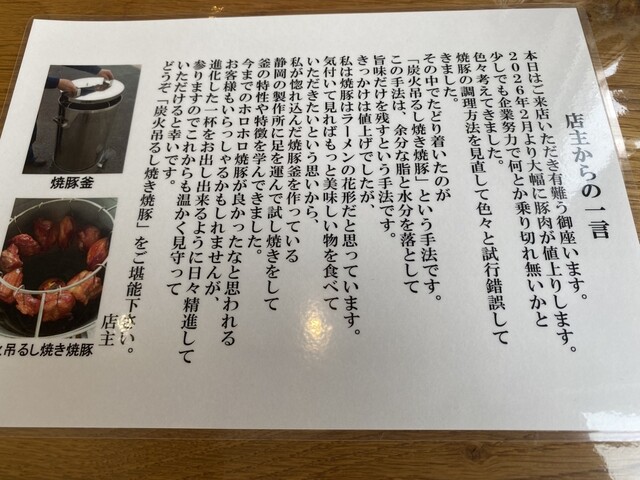 店主からの一言
本日はご来店いただき有難う御座います。
2026年2月より大幅に豚肉が値上りします。
少しでも企業努力で何とか乗り切れ無いかと
色々考えてきました。
焼豚の調理方法を見直して色々と試行錯誤して
きました。
その中でたどり着いたのが
「炭火吊るし焼き焼豚」という手法です。
この手法は、余分な脂と水分を落として
旨味だけを残すという手法です。
きっかけは値上げでしたが、
私は焼豚はラーメンの花形だと思っています。
気付いて見ればもっと美味しい物を食べて
いただきたいという思いから、
私が惚れ込んだ焼豚釜を作っている
静岡の製作所に足を運んで試し焼きをして
釜の特性や特徴を学んできました。
今までのホロホロ焼豚が良かったなと思われる
お客様もいらっしゃるかもしれませんが、
進化した一杯をお出し出来るように日々精進して
参りますのでこれからも温かく見守って
いただけると幸いです。
どうぞ「炭火吊るし焼き焼豚」をご堪能下さい。
店主
焼豚釜
吊るし焼き焼豚